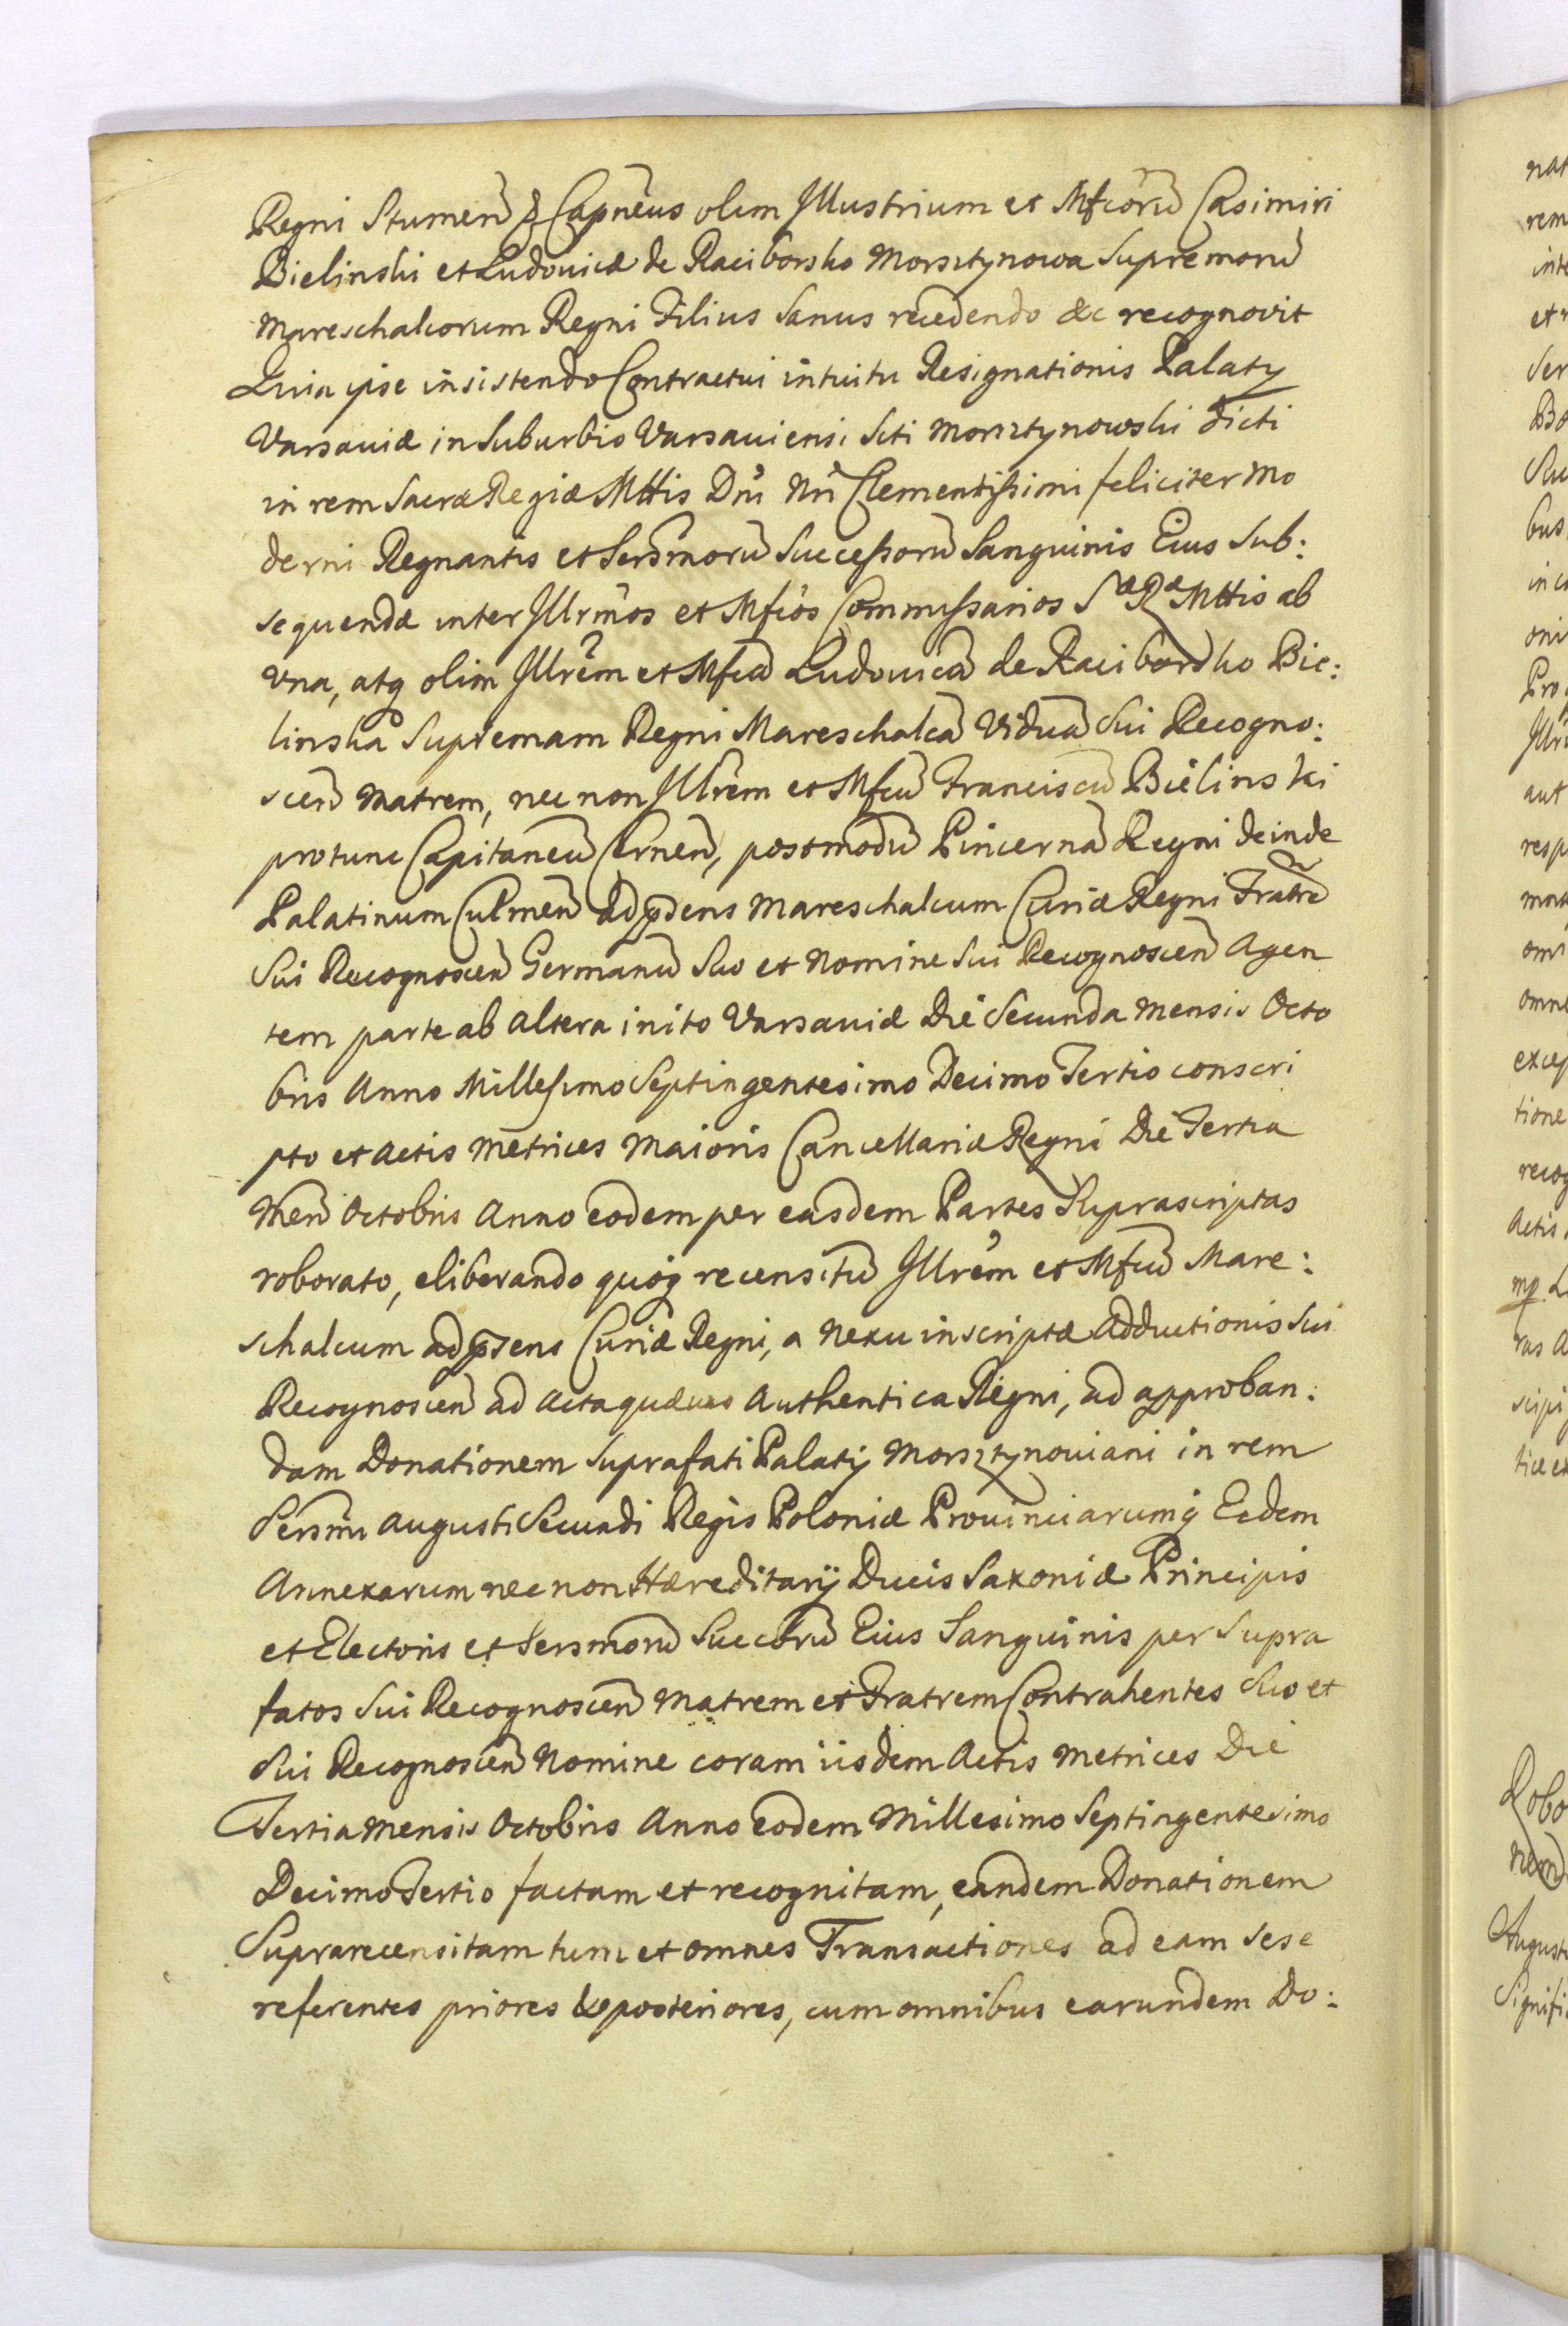 Regni Stumen̄ & Capn̄eus olim Illustrium et Mfcorū Casimiri
Bielinski et Ludovicæ de Raciborsko Morsztynowa Supremorū
Mareschalcorum Regni Filius Sanus recedendo &c recognovit
Quia ipse insistendo Contractui intuitu Resignationis Palaty
Varsaviæ in Suburbio Varsaviensi Siti Morsztynowski dicti
in rem Sacræ Regiæ Mttis Dn̄i Nr̄i Clementissimi feliciter mo
derni Regnantis et Serēmorū Successorū Sanguinis Eius Sub:
sequendæ inter Illrm̄os et Mfcōs Commissarios Sæ Ræ Mttis ab
vna, atq olim Illrēm et Mfcā Ludovicā de Raciborsko Bie:
linská Supremam Regni Mareschalcā Viduā Sui Recogno:
scen̄ Matrem, nec non Illrēm et Mfcū Franciscū Bielinski
protunc Capitaneū Cernen̄, postmodū Pincernā Regni deinde
Palatinum Culmen̄ ad p̄sens Mareschalcum Curiæ Regni Fratrē
Sui Recognoscen̄ Germanū Suo et Nomine Sui Recognoscen̄ Agen
tem parte ab altera inito Varsaviæ Die Secunda Mensis Octo
bris Anno Millesimo Septingentesimo Decimo Tertio conscri
pto et Actis Metrices Maioris Cancellariæ Regni Die Tertia
Men̄ Octobris Anno eodem per easdem Partes Suprascriptas
roborato, eliberando quoq recensitū Illrēm et Mfcū Mare:
schalcum ad p̄sens Curiæ Regni, a Nexu inscriptæ Adductionis Sui
Recognoscen̄ ad Acta quævis Authentica Regni, ad approban:
dam Donationem Suprafati Palatij Morsztynoviani in rem
Sersm̄i Augusti Secundi Regis Poloniæ Provinciarumq Eedem
Annexarum nec non Hæreditarij Ducis Saxoniæ Principis
et Electoris et Sersmorū Succorū Eius Sanguinis per Supra
fatos Sui Recognoscen̄ Matrem et Fratrem Contrahentes Suo et
Sui Recognoscen̄ Nomine coram iisdem Actis Metrices Die
Tertia Mensis Octobris Anno eodem Millesimo Septingentesimo
Decimo Tertio factam et recognitam, eandem Donationem
Suprarecensitam tum et omnes Transactiones ad eam sese
referentes priores & posteriores, cum omnibus earundem Do: